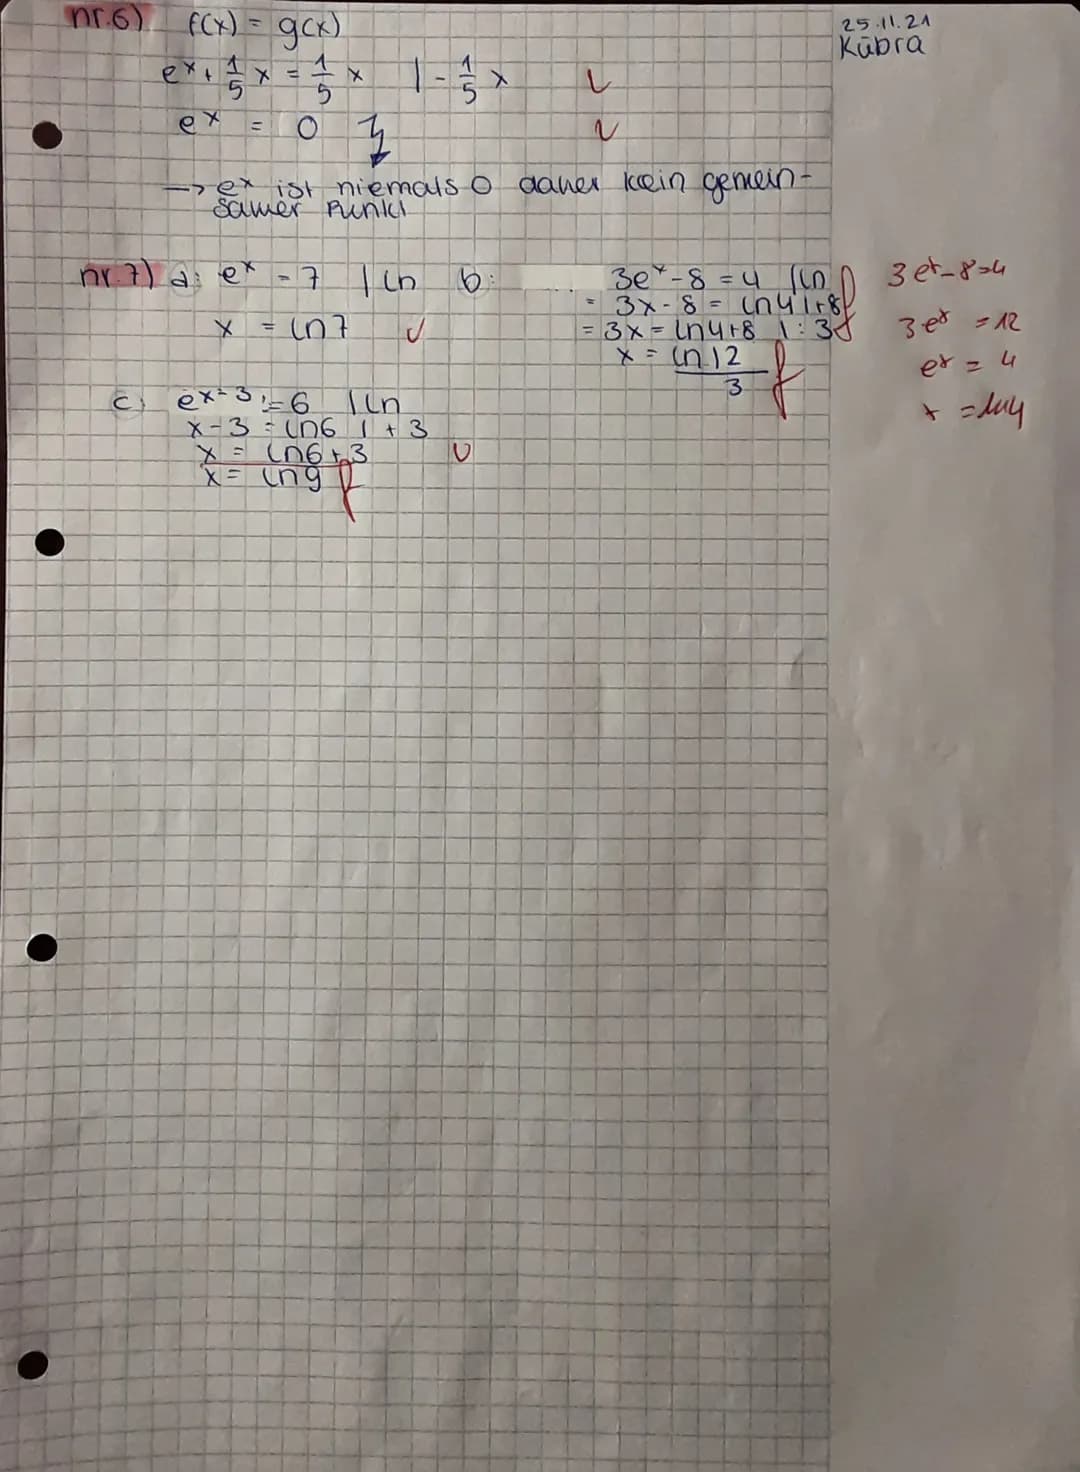 nr.6) f(x) = g(x)
25.11.21
Kübra
eˣ + 1/5 x = 1/5 x | - 1/5 x
eˣ = 0 ↯
→ eˣ ist niemals 0 daher kein gemein-
samer Punkt
nr.7) a: eˣ = 7 | ln
x = ln7
b: 3eˣ - 8 = 4 | ln f
= 3x - 8 = ln4 | +8 f
= 3x = ln4+8 | : 3 f
x = ln12/3 f
3eˣ - 8 = 4
3eˣ = 12
eˣ = 4
x = ln4
c) eˣ⁻³ = 6 | ln
x - 3 = ln6 | + 3
x = ln6+3
x = ln9 f